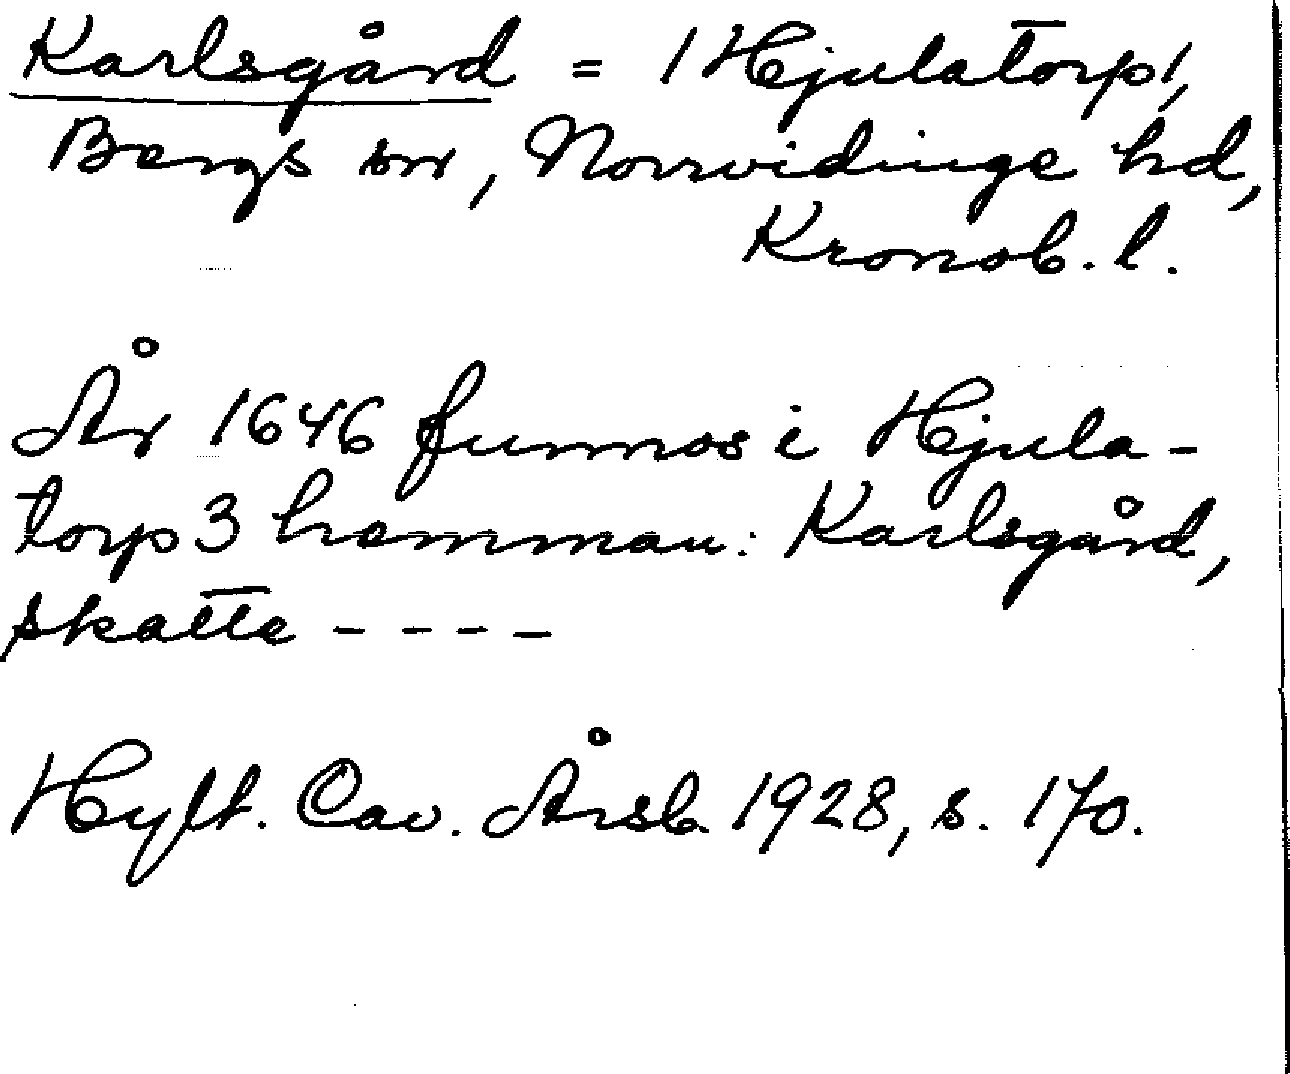 Karlsgård = /Hjulatorp/,
Bergs sn, Norrvidinge hd,
Kronob. l.
År 1646 funnos i Hjula-
torp 3 hemman: Karlsgård,
skatte - - - -
Hylt. Cav. Årsb. 1928, s. 170.